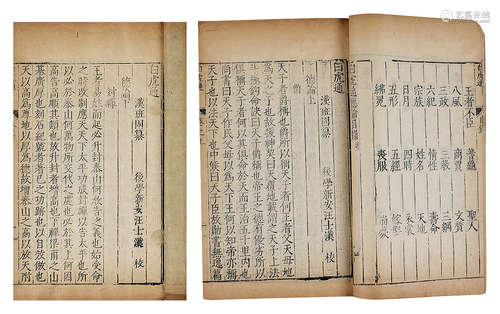 白虎通
王者不臣 蓍龜 聖人
八風 商賈 文質
三政 三教 三綱
六紀 情性 壽命
宗族 姓名 天地
日月 四時 衣裳
五刑 五經 嫁娶
紼冕 喪服 崩薨
白虎通
德論上
漢班固纂 後學新安汪士漢校
爵
天子者爵稱也爵所以稱天子者何王者父天母地
為天之子也故援神契曰天覆地載謂之天子上法
斗極鈎命決曰天子爵稱也帝王之德有優劣所以
俱稱天子者何以其俱命於天而王治五千里內也
尚書曰天子作民父母以為天下王何以知帝亦稱
天子也以法天下也中候曰天子臣放勛書無逸篇
白虎通
德論下
漢班固纂 後學新安汪士漢校
封禪
王者易姓而起必升封泰山何報告之義也始受命
之時改制應天天下太平功成封禪以告太平也所
以必於泰山何萬物所交代之處也必於其上何因
高告高順其類也故升封者增高也下禪梁甫之山
基廣厚也刻石紀號者著己之功跡也以自效放也
天以高為尊地以厚為德故增泰山之高以放天附